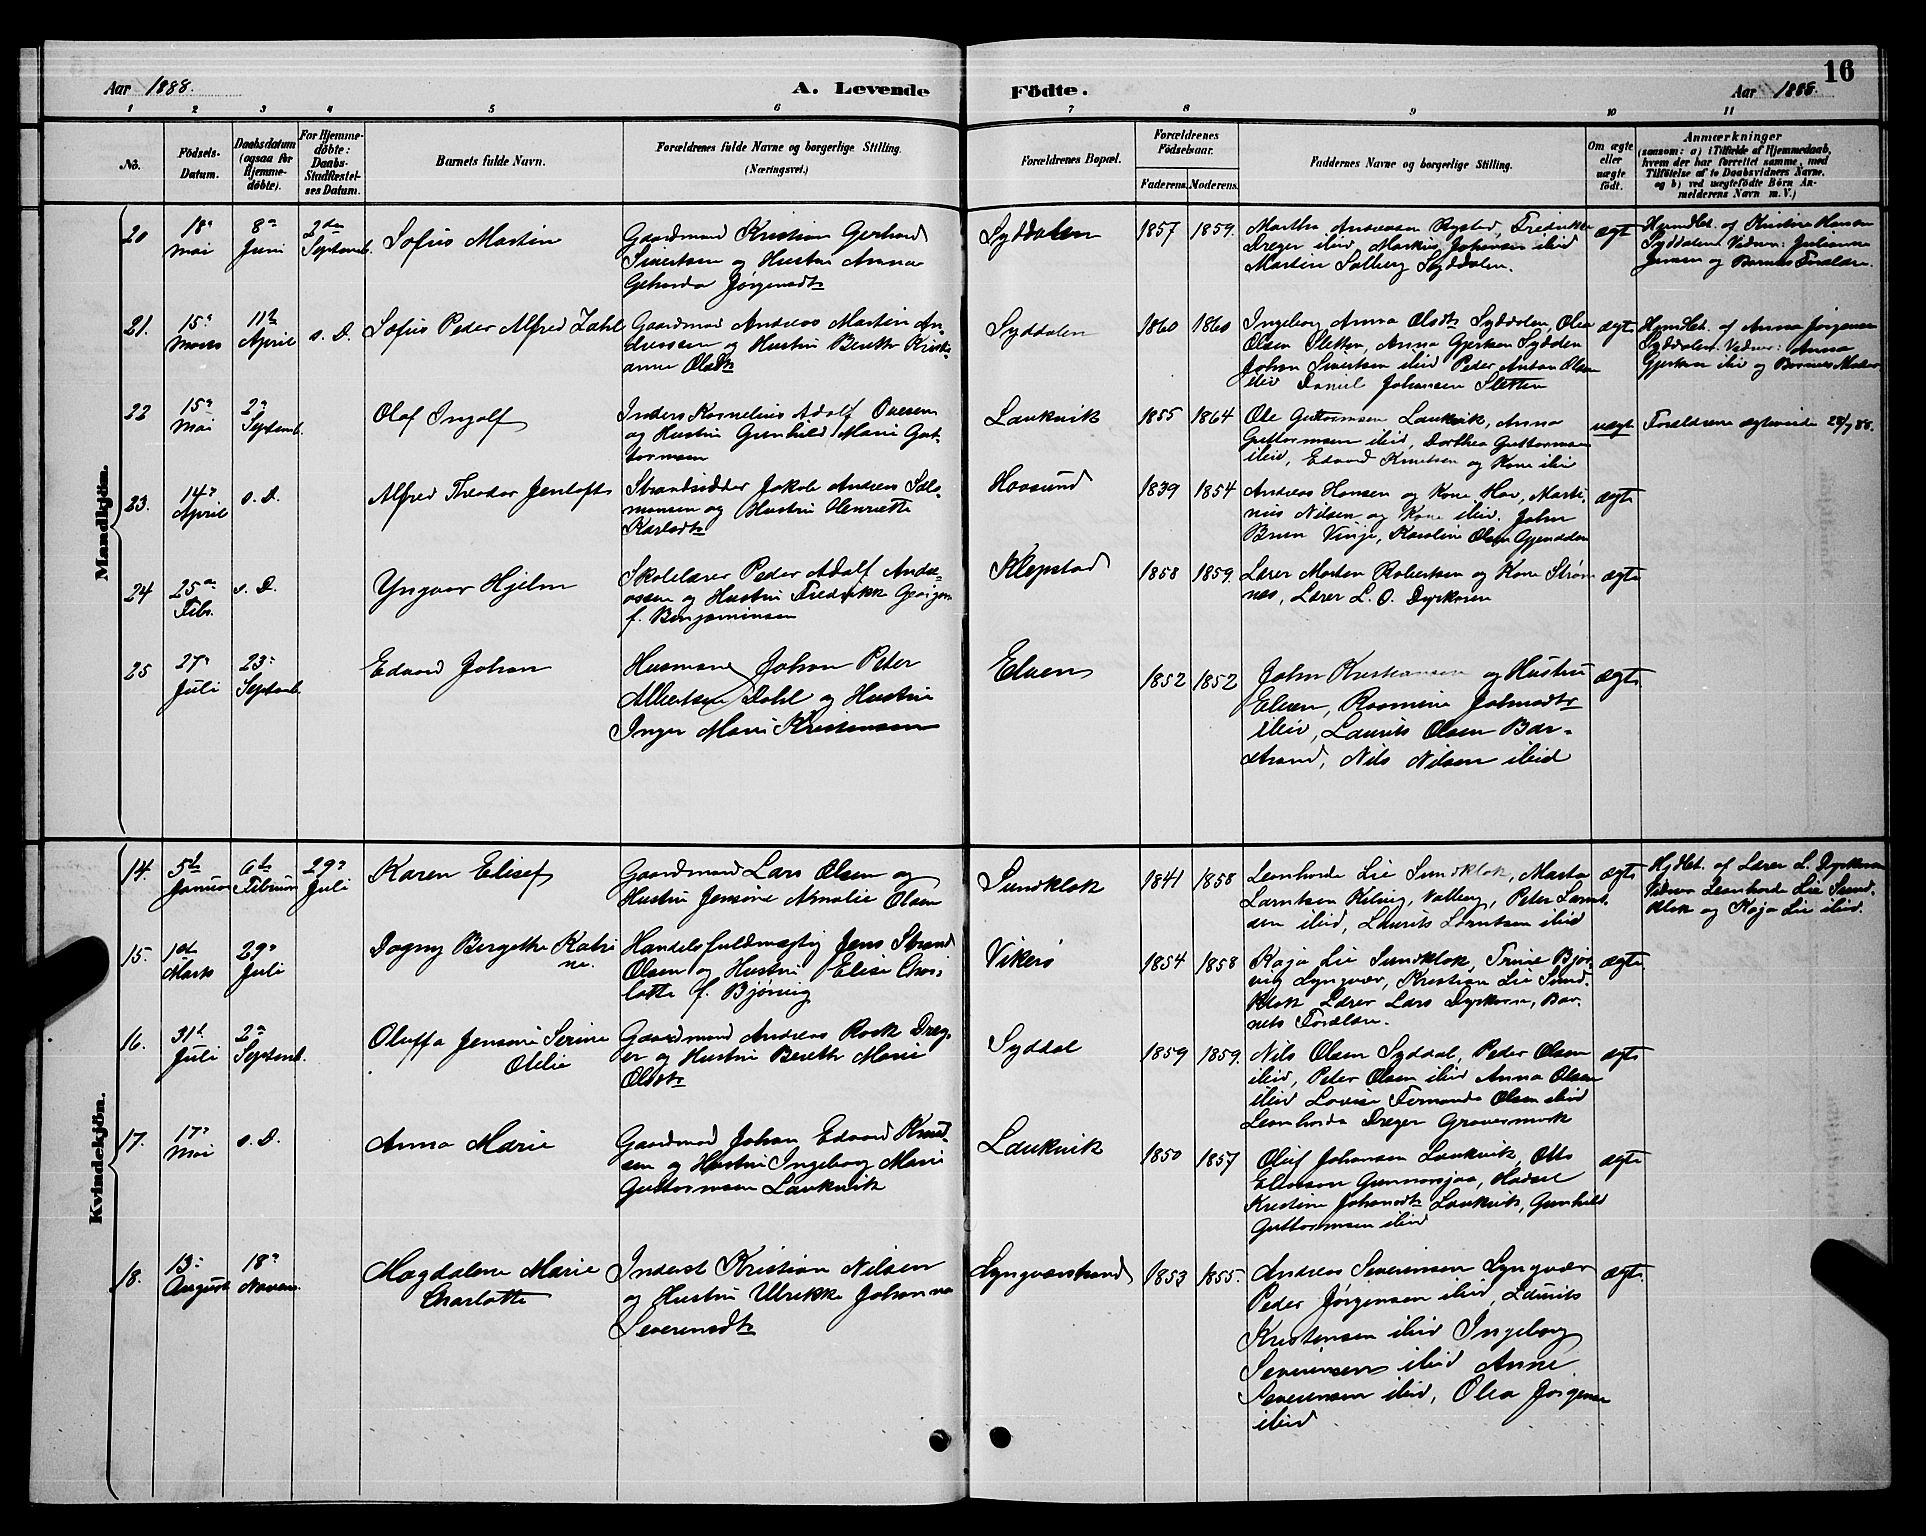 Aar 1888.
A. Levende Födte.
Aar 1888.
16
1 2 3 4 5 6 7 8 9 10 11
No.
Födsels-
Datum.
Daabsdatum
(ogsaa for
Hjemme-
døbte).
For Hjemme-
døbte:
Daabs-
Stadfæstel-
ses Datum.
Barnets fulde Navn.
Forældrenes fulde Navne og borgerlige Stilling.
(Næringsvei.)
Forældrenes Bopæl.
Forældrenes
Födselsaar.
Faderens. Moderens.
Faddernes Navne og borgerlige Stilling.
Om ægte
eller
uægte
födt.
Anmærkninger
(saasom: a) i Tilfælde af Hjemmedaab,
hvem der har forrettet samme, med
Tilföielse af to Daabsvidners Navne,
og b) ved uægtefödte Börn An-
melderens Navn m. V.)
Mandkjön.
20
18de
Mai
8de
Juni
2den
Septemb.
Sofus Martin
Gaardmand Kristian Gerhard
Sivertsen og Hustru Anna
Geharda Jørgensdtr
Syddalen
1857 1859.
Martha Andreasen Rysted, Fredrikke
Dreyer ibid, Markus Johansen ibid
Martin Solberg Syddalen.
ægte
Hjemdbt. af Kristine Hansen
Syddalen Vidner: Julianna
Jensen og Barnets Forældre.
21.
15de
Marts
11te
April
s. D.
Sofus Peder Alfred Zahl
Gaardmand Andreas Martin An-
dreassen og Hustru Berette Kristi-
anne Olsdtr
Syddalen
1860 1860
Ingeborg Anna Olsdtr Syddalen, Olea
Olsen Sletten, Anna Gjertsen Syddalen
Johan Sivertsen ibid Peder Anton Olsen
ibid Daniel Johansen Sletten
ægte
Hjemdbt. af Anna Jörgensen
Syddalen. Vidner: Anna
Gjertsen ibid og Barnets Moder
22
15de
Mai
2de
Septemb.
Olaf Ingolf
Inders Kornelius Adolf Ovesen
og Hustru Gunhild Marie Gut-
tormsen
Laukvik
1855 1864
Ole Guttormsen Laukvik, Anna
Guttormsen ibid, Dorthea Guttormsen
ibid, Edvard Knutsen og Kone ibid
uægte
Forældrene ægteviede 28/7 88.
23.
14de
April
s. D.
Alfred Theodor Jentoft
Strandsidder Jakob Andreas Salo-
monsen og Hustru Henriette
Karlsdtr
Hovsund
1839 1854
Andreas Hansen og Kone Hov, Marti-
nus Nilsen og Kone ibid. Johan
Bruun Vinje, Karoline Olsen Gjendalen
ægte
24
25de
Febr.
s. D.
Yngvar Hjelm
Skolelærer Peder Adolf Andre-
assen og Hustru Fredrikke Georgine
f. Benjaminsen
Klepstad
1858 1859.
Lærer Morten Robertsen og Kone Strøm
nes, Lærer L. O. Dyrkoren
ægte
25
27de
Juli
23de
Septemb.
Edvard Johan
Husmand Johan Peter
Albertsen Dahl og Hustru
Inger Marie Kristensen
Elven
1852 1852
Johan Kristiansen og Hustru
Elven, Rasmine Johnsdtr
ibid, Laurits Olsen Bar-
strand, Nils Nilsen ibid
ægte
Kvindekjön.
14.
5te
Januar
6te
Februar
29de
Juli
Karen Elisef
Gaardmand Lars Olsen og
Hustru Jensine Amalie Olsen
Sundklak
1841 1858
Leonharda Lie Sundklak, Marta
Larntsen Hilvig, Valberg, Peter Larnt-
sen ibid, Laurits Larntsen ibid
ægte
Hjdbt. af Lærer L. Dyrkoren
Vidner Leonharda Lie Sund-
klak og Kaja Lie ibid.
15.
1ste
Marts
29de
Juli
Dagny Bergethe Katri
ne.
Handelsfuldmægtig Jens Strand
Olsen og Hustru Elise Char-
lotte f. Bjørvig
Vikerø
1854 1858
Kaja Lie Sundklak, Trine Bjør-
vig Lyngvær, Kristian Lie Sund-
klak Lærer Lars Dyrkoren, Bar-
nets Forældre.
ægte
16.
31te
Juli
2de
Septemb.
Oluffa Jensine Serine
Otilie
Gaardmand Andreas Rock Drey-
er og Hustru Berette Marie
Olsdtr
Syddal
1859 1859.
Nils Olsen Syddal, Peder Olsen
ibid, Peter Olsen ibid Anna Olsen
ibid Lovise Fernanda Olsen ibid
Leonharda Dreyer Gravermark
ægte
17.
17de
Mai
s. D.
Anna Marie
Gaardmand Johan Edvard Knud-
sen og Hustru Ingeborg Marie
Guttormsen Laukvik
Laukvik
1850 1857
Oluf Johansen Laukvik, Otto
Eliassen Gunnarsjaa, Hadsel
Kristine Johansdtr Laukvik, Gunhild
Guttormsen ibid
ægte
18.
13de
August
18de
Novem.
Magdalena Marie
Charlotte
Inderst Kristian Nilsen
og Hustru Ulrikke Johanna
Severinsdtr
Lyngværstrand
1853 1855.
Andreas Severinsen Lyngvær
Peder Jørgensen ibid, Laurits
Kristensen ibid Ingeborg
Severinsen ibid Anne
Severinsen ibid, Olea Jørgensen
ibid
ægte